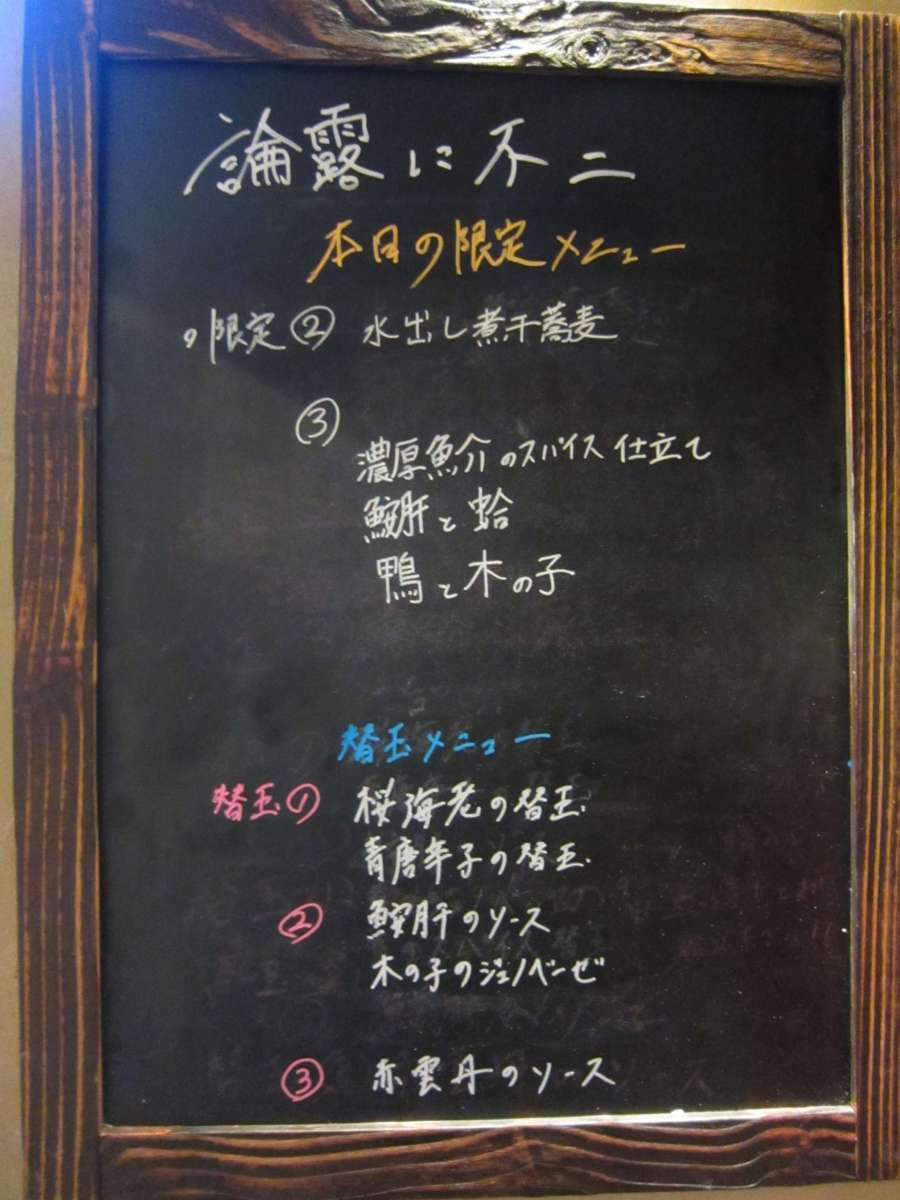 論露に不二
本日の限定メニュー
の限定② 水出し煮干蕎麦
③
濃厚魚介のスパイス仕立て
鮟肝と蛤
鴨と木の子
替玉メニュー
替玉の 桜海老の替玉
青唐辛子の替玉
② 鮟肝のソース
木の子のジェノベーゼ
③ 赤雲丹のソース